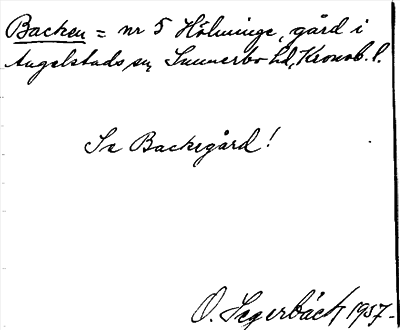 Backen = nr 5 Hölminge, gård i
Angelstads sn, Sunnerbo hd, Kronob. l.
Se Backegård!
O. Segerbäck 1957.